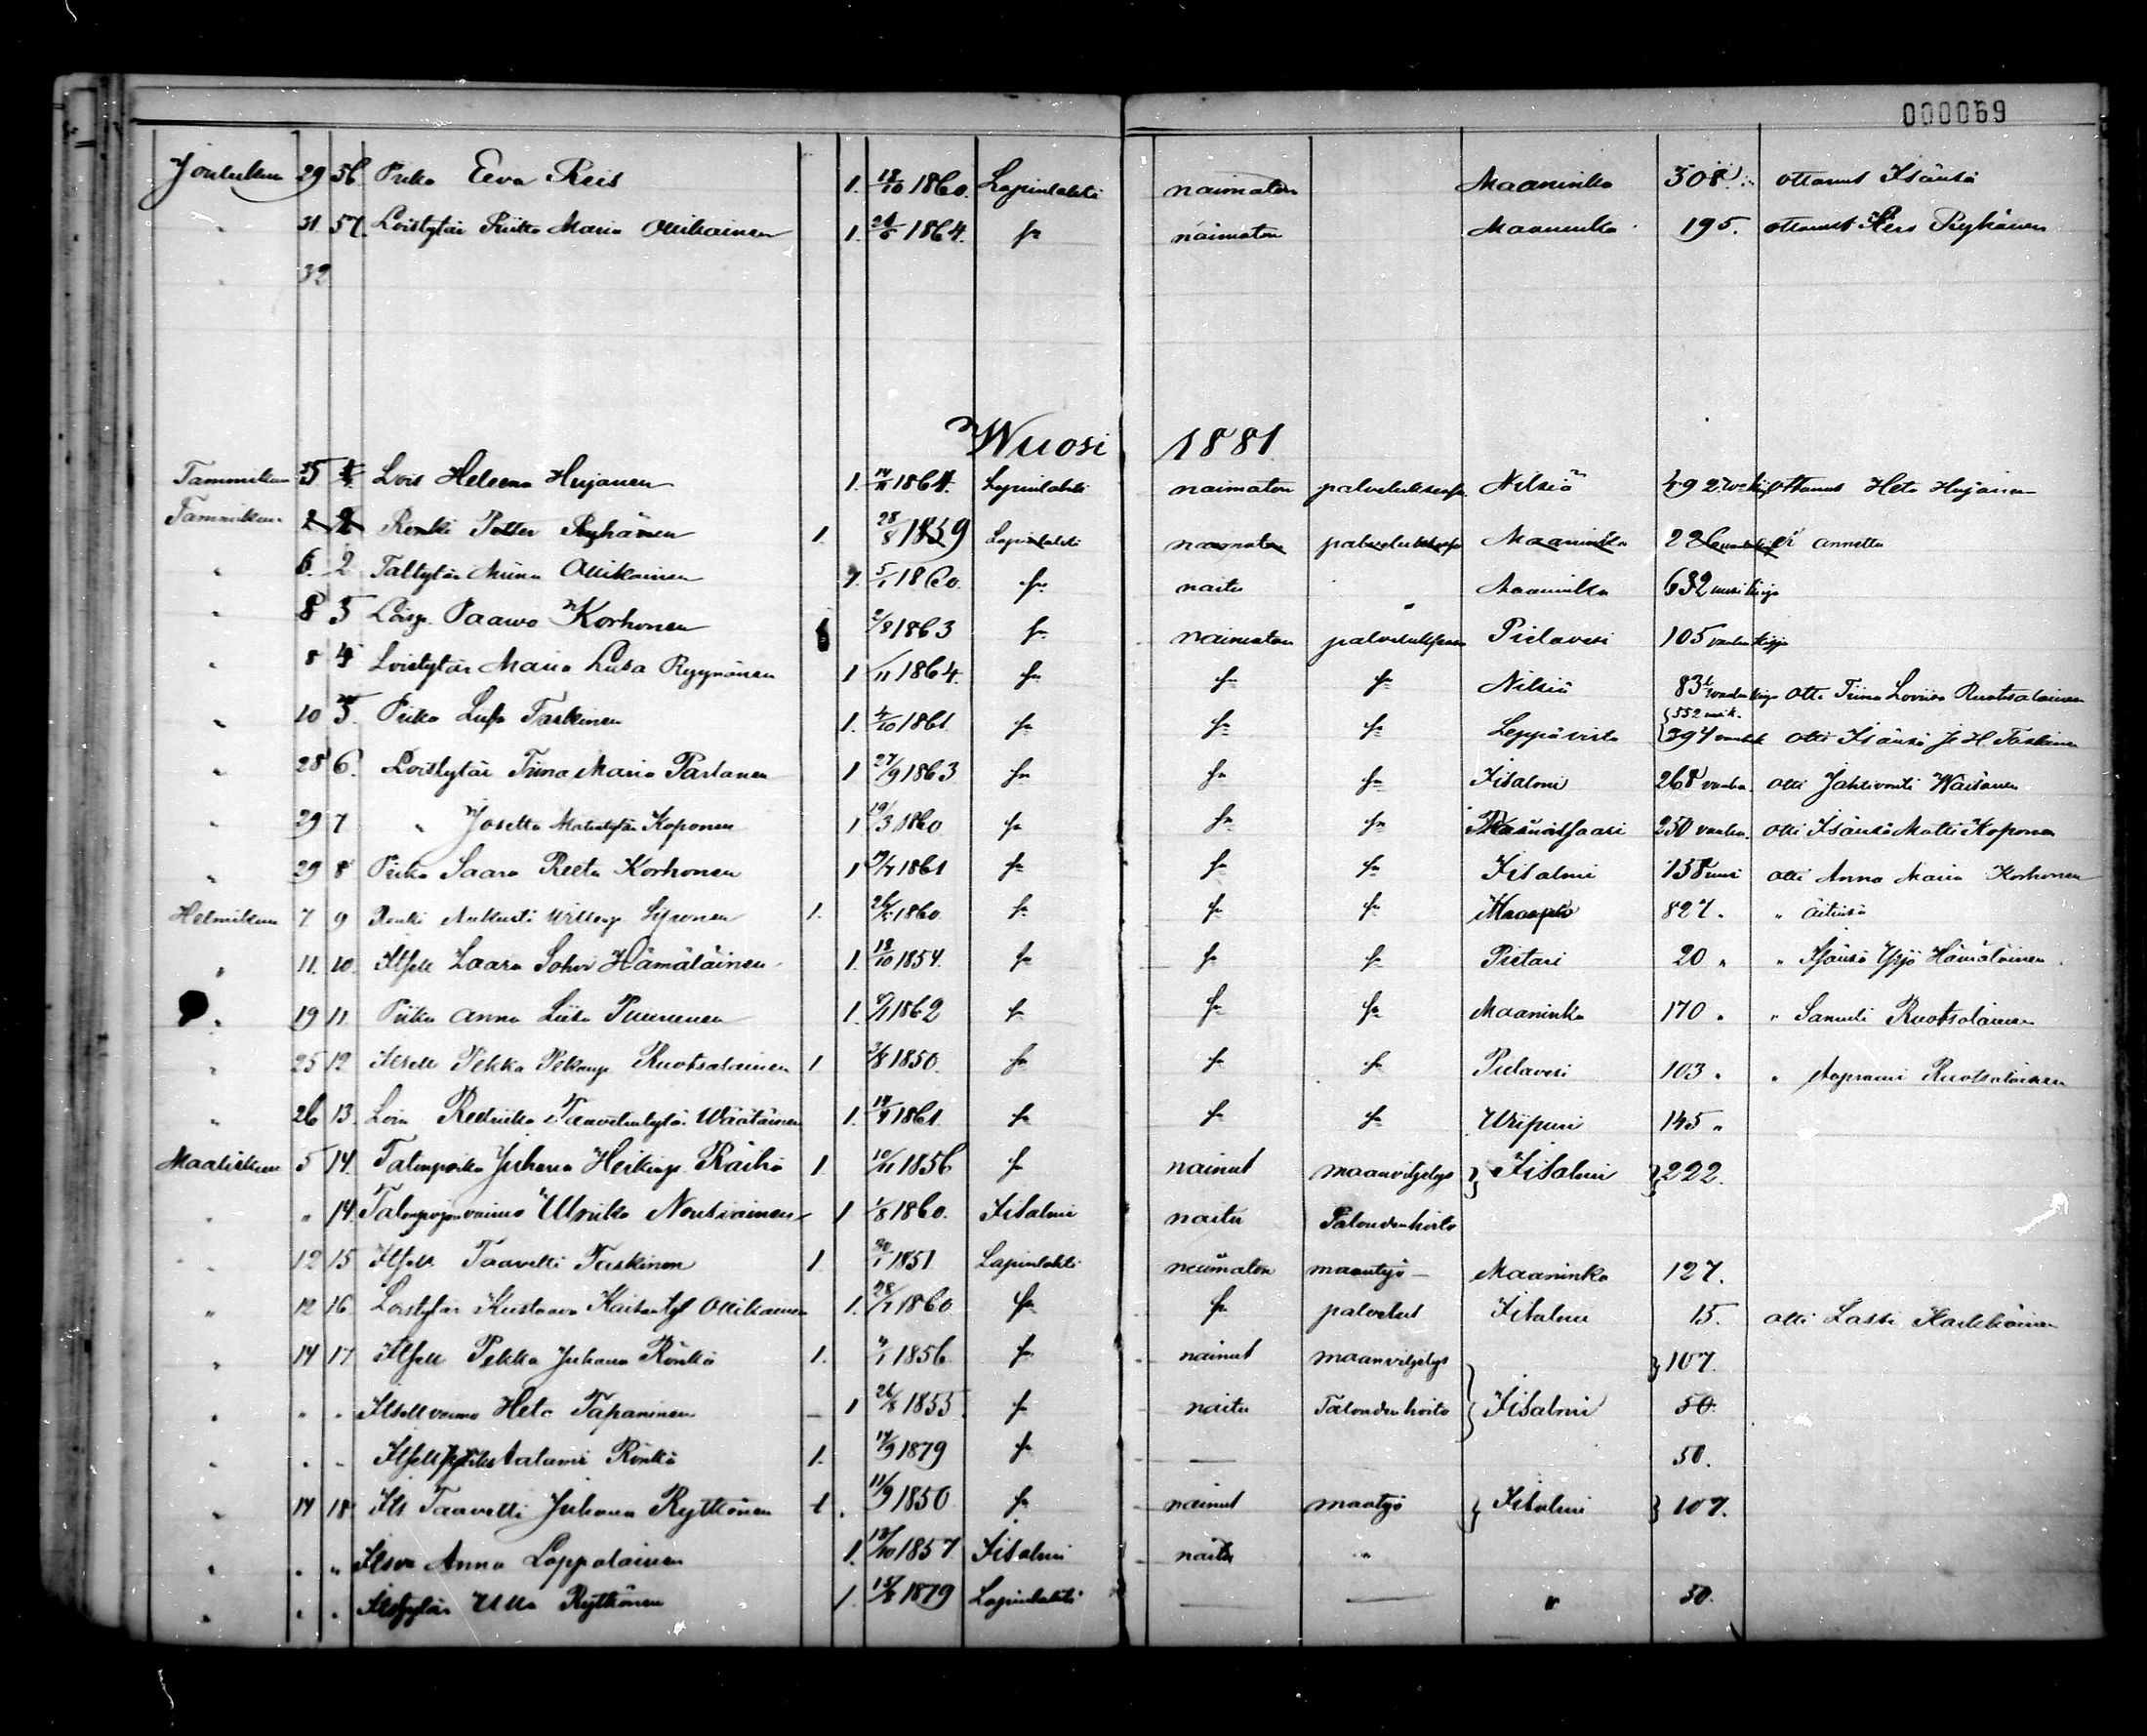 000069
Joulukuu 29 56. Piika Eeva Reis 1. 18/10 1860. Lapinlahti naimaton Maaninka 308. ottanut Isänsä
" 31 57. Loistytär Riikka Maria Ollikainen 1. 1864. sn naimaton Maaninka 195. ottanut Ryhänen
" 32
Wuosi 1881
Tammikuu 5 Lois Heleena Hujanen 1. 1864. Lapinlahti naimaton Nilsiä ottanut Heta Hujanen
Tammikuu 2 2 Renki Petter Ryhänen 1. 28/8 1859 Lapinlahti naimaton Maaninka ei annettu
" 6. 2 Taltytär Miina Ollikainen 1. 5/1 1860. sn naitu " Maaninka 632 uusi kirja
" 8 3 Loisp. Paavo Korhonen 1 2/8 1863 sn naimaton Pielavesi 105 vanha kirja
" 8 4 Loistytär Maria Liisa Ryynänen 1 1864. sn sn sn Nilsiä 83 vanha kirja otti Tiina Loviisa Ruotsalainen
" 10 5. Piika Liisa Taskinen 1. 4/10 1861 sn sn sn Leppävirta {552 uusi k. 394 otti Isänsä J. H. Taskinen
" 28 6. Loistytär Tiina Maria Partanen 1 27/9 1863 sn sn sn Iisalmi 268 vanha. otti Jahtivouti Väisänen
" 29 7 " Josetta Matintytär Koponen 1 19/3 1860 sn sn sn 250 vanha. otti Isänsä Matti Koponen
" 29 8 Piika Saara Reeta Korhonen 1 1861 sn sn sn Iisalmi 158 uusi otti Anna Maria Korhonen
Helmikuu 7 9 Renki Aukusti Willep. 1. 1860. sn sn sn 827. " äitinsä
" 11. 10. Itsell Laara Sohvi Hämäläinen 1. 18/10 1854. sn sn sn Pietari 20 " " Isänsä Yrjö Hämäläinen
" 19 11 Piika Anna Liisa 1. 1862 sn sn sn Maaninka 170 " " Samuli Ruotsalainen
" 25 12 Itsell Pekka Pekanp. Ruotsalainen 1 1850. sn sn sn Pielavesi 103 " " Aaprami Ruotsalainen
" 26 13. Lois Redriikka Taavetintytär Väätäinen 1. 1861. sn sn sn Wiipuri 145 "
Maaliskuu 5 14. Talonpoika Juhana Heikinp. Räihä 1. 1856 sn nainut maanviljelys } Iisalmi } 222.
" " 14. Talonpojanvaimo Ulriika Nousiainen 1 1/8 1860. Iisalmi naitu Taloudenhoito
" 12 15 Itsell. Taavetti Taskinen 1. 1851. Lapinlahti naimaton maantyö Maaninka 127.
" 12 16. Loistytär Kustaava Ollikainen 1. 1860 sn sn palvelus Iisalmi 15. otti Lassi
" 14 17 Itsell Pekka Juhana Rönkö 1. 1856. sn nainut maanviljelys } 107.
" " " Itsell vaimo Heta Tapaninen 1 26/8 1855. sn naitu Taloudenhoito } Iisalmi 50.
" " " Itsell poika Aatami Rönkö 1. 14/9 1879 sn — 50.
" 14 18. Its Taavetti Juhana Rytkönen 1. 11/9 1850 sn nainut maatyö } Iisalmi } 107.
" " " Itsva Anna Lappalainen 1. 12/10 1857 Iisalmi naitu "
" " " Itstytär Ulla Rytkönen 1. 1879 Lapinlahti — — " 50.